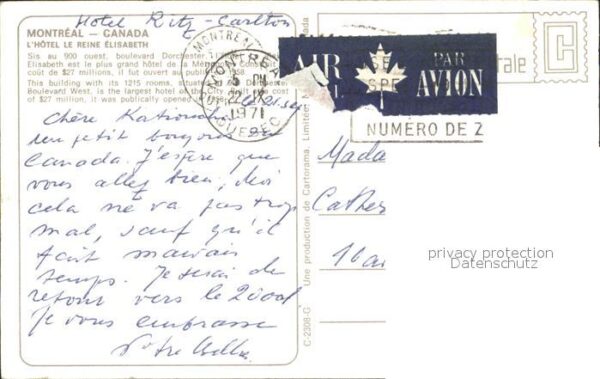 Hotel Ritz-Carlton
MONTRÉAL — CANADA
L'HÔTEL LE REINE ÉLISABETH
Sis au 900 ouest, boulevard Dorchester,
Elisabeth est le plus grand hôtel de la Mé
coût de $27 millions, il fut ouvert au public 1958.
This building with its 1215 rooms, situated Dorchester
Boulevard West, is the largest hotel City. Built the cost
of $27 million, it was publicly opened
Chère
un petit bonjour du
Canada. J'espère que
vous allez bien, moi
cela ne va pas trop
mal, sauf qu'il
fait mauvais
temps. Je serai de
retour vers le 20 oct
Je vous embrasse
Votre
MONTRÉAL
MONTREAL
PM
1971
QUEBEC
AIR
PAR
AVION
NUMÉRO DE
tale
C
Une production de Cartorama, Limitée,
C-2308-G
Mada
Cather
16 av
privacy protection
Datenschutz